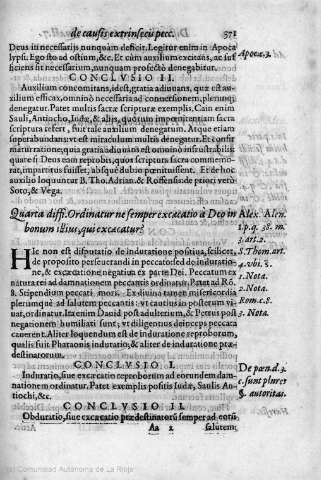 de causis extrinsecis pecc. 371
Deus in necessarijs nunquam deficit. Legitur enim in Apoca
lypsi. Ego sto ad ostium, &c. Et cum auxilium excitans, ac suf
ficiens sit necessarium, nunquam profectò denegabitur.
Apoca. 3.
CONCLVSIO II.
Auxilium concomitans, id est, gratia adiuuans, quæ est au-
xilium efficax, omninò necessaria ad conuersionem, plerunq;
denegatur. Patet multis sacræ scripturæ exemplis. Cain enim
Sauli, Antiocho, Iudæ, & alijs, quorum impœnitentiam sacra
scriptura refert, fuit tale auxilium denegatum. Atque etiam
superabundans, vt est miraculum multis denegatur. Et confir
matur ratione, quia gratia adiuuans est omninò infrustrabilis:
quare si Deus eam reprobis, quos scriptura sacra commemo-
rat, impartitus fuisset, absque dubio pœnituissent. Et de hoc
auxilio loquuntur B. Tho. Adrian. & Roffensis: de priori verò
Soto, & Vega.
Quarta diffi. Ordinatur ne semper excæcatio a Deo in
bonum illius, qui excæcatur?
Alex. Alen.
1. p. q. 38. m.
3. art. 2.
S. Thom. art.
4. vbi. s.
1. Nota.
2. Nota.
Rom. c. 8.
3. Nota.
HIc non est disputatio de induratione positiua, scilicet,
de proposito perseuerandi in peccato: sed de induratio-
ne, & excæcatione negatiua ex parte Dei. Peccatum ex
natura rei ad damnationem peccantis ordinatur. Patet ad Ro.
8. Stipendium peccati mors. Ex diuina tamen misericordia
plerunque ad salutem peccantis: vt cautius in posterum vi-
uat, ordinatur. Ita enim Dauid post adulterium, & Petrus post
negationem humiliati sunt; vt diligentius deinceps peccata
cauerent. Aliter loquendum est de induratione reproborum,
qualis fuit Pharaonis induratio, & aliter de induratione præ-
destinatorum.
CONCLVSIO I.
Induratio, siue excæcatio reproborum ad eorundem dam-
nationem ordinatur. Patet exemplis positis Iudæ, Saulis An-
tiochi, &c.
De pœn. d. 3.
c. sunt plures
§. autoritas.
CONCLVSIO II.
Obduratio, siue excæcatio prædestinatorum semper ad eorũ
Aa 2 salutem;
Comunidad Autónoma de La Rioja